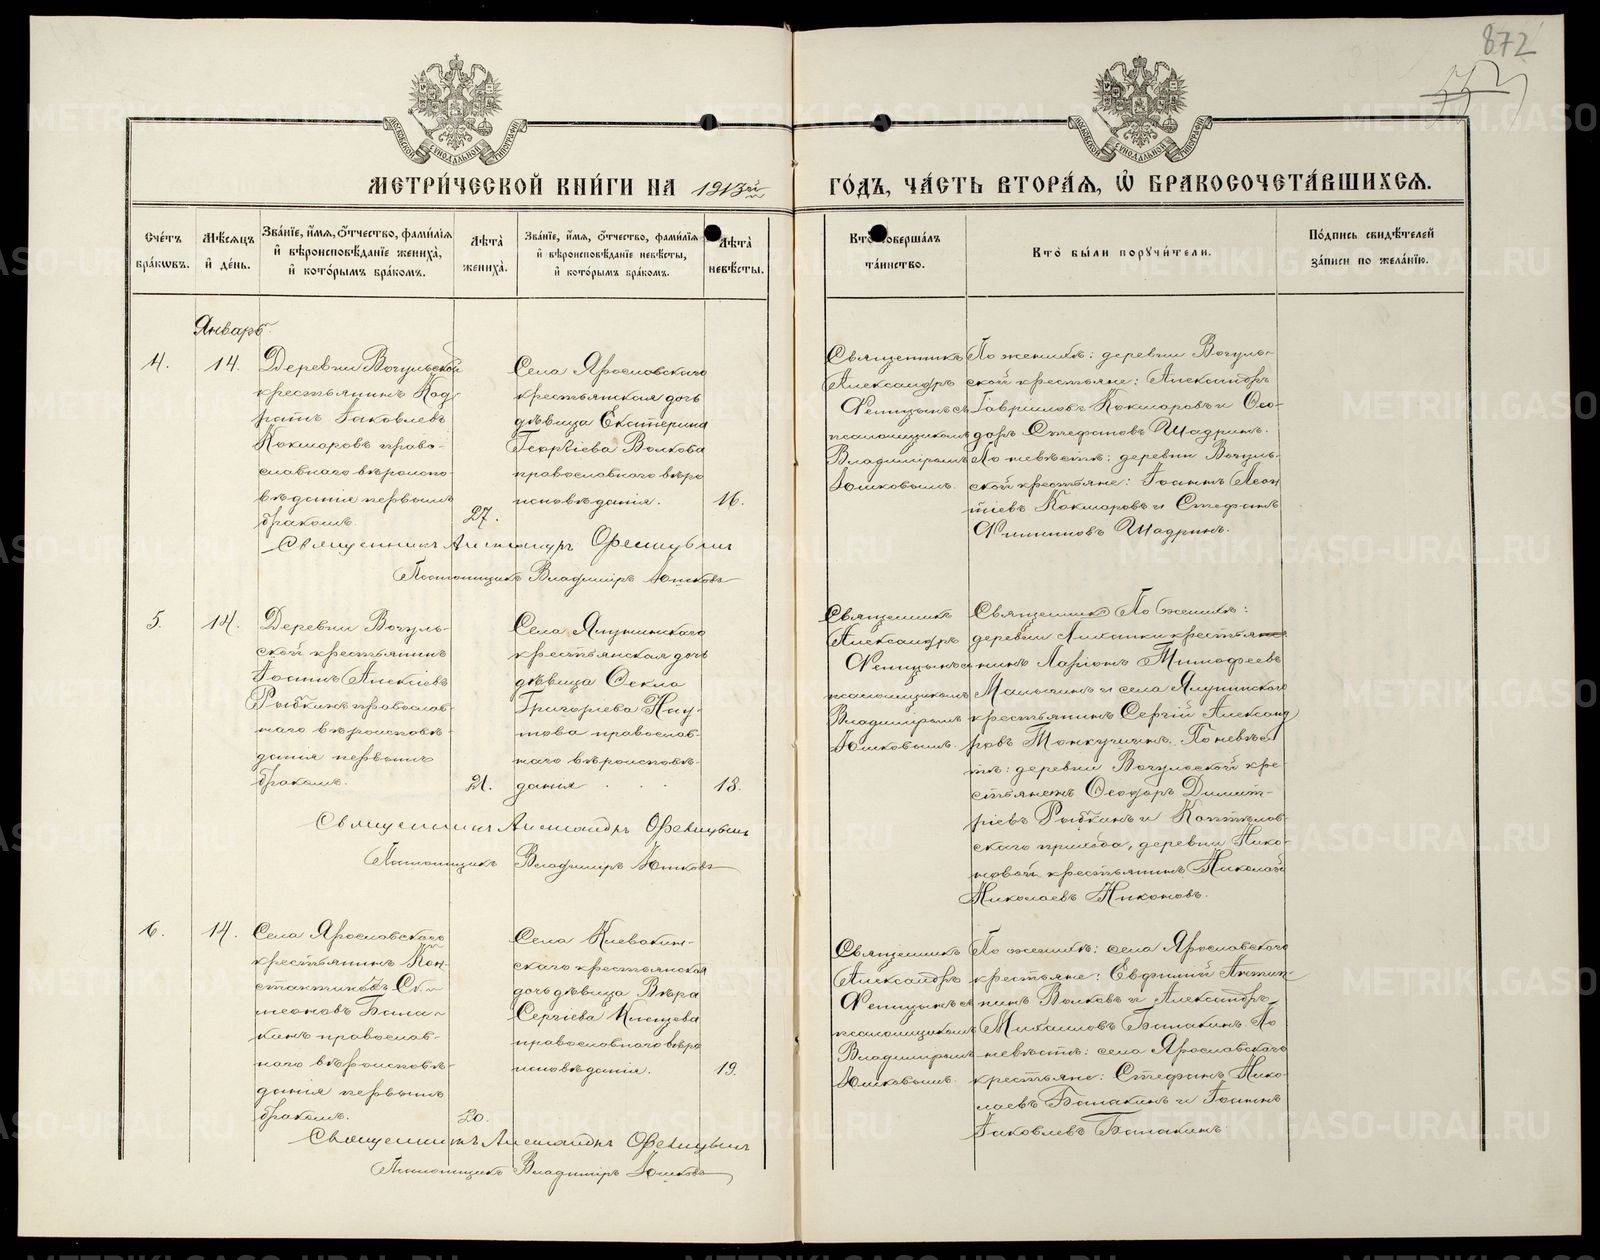 872
МЕТРИ́ЧЕСКОЙ КНИ́ГИ НА 1913й
ГО́ДЪ, ЧА́СТЬ ВТОРА́Я, Ѡ БРАКОСОЧЕТА́ВШИХСЯ.
Сче́тъ бра́ковъ.
Мѣ́сяцъ и де́нь.
Зва́нїе, и́мя, о́тчество, фами́лїя
и вѣроисповѣ́данїе жениха̀,
и кото́рымъ бра́комъ.
Лѣта̀ жениха̀.
Зва́нїе, и́мя, о́тчество, фами́лїя
и вѣроисповѣ́данїе невѣ́сты,
и кото́рымъ бра́комъ.
Лѣта̀ невѣ́сты.
Кто̀ соверша́лъ
та́инство.
Кто̀ бы́ли поручи́тели.
По́дпись свидѣ́телей
за́писи по жела́нїю.
Январь.
4.
14.
Деревни Вогульской
крестьянинъ Код-
ратъ Іаковлевъ
Кокшаровъ право-
славнаго вѣроиспо-
вѣданія первымъ
бракомъ.
27.
Села Ярославскаго
крестьянская дочь
дѣвица Екатерина
Георгіева Волкова
православнаго вѣро
исповѣданія.
16.
Священникъ
Александръ
псаломщикомъ
Владиміромъ
Юшковымъ.
По женихѣ: деревни Вогуль-
ской крестьяне: Александръ
Гавриловъ Кокшаровъ и Ѳео-
доръ Стефановъ Шадринъ.
По невѣстѣ: деревни Вогуль-
ской крестьяне: Іоаннъ Леон
тіевъ Кокшаровъ и Стефанъ
Филипповъ Шадринъ.
Священникъ Александръ
Псаломщикъ Владиміръ Юшковъ
5.
14.
Деревни Вогуль-
ской крестьянинъ
Іоаннъ Алексіевъ
Рыбкинъ православ-
наго вѣроисповѣ-
данія первымъ
бракомъ.
21.
Села Ялунинскаго
крестьянская дочь
дѣвица Ѳекла
Григоріева Нау-
мова православ-
наго вѣроисповѣ-
данія . . .
18.
Священникъ
Александръ
псаломщикомъ
Владиміромъ
Юшковымъ.
Священник По женихѣ:
деревни крестья
нинъ Ларіонъ Тимоѳеевъ
Мальгинъ и села Ялунинскаго
крестьянинъ Сергій Александ
ровъ Тонкушинъ. По невѣс
тѣ: деревни Вогульской кре-
стьянинъ Ѳеодоръ Димит-
ріевъ Рыбкинъ и Коптѣлов-
скаго прихода, деревни Нико-
новой крестьянинъ Николай
Николаевъ Никоновъ.
Священникъ Александръ
Псаломщикъ Владиміръ Юшковъ
6.
14.
Села Ярославскаго
крестьянинъ Кон-
стантинъ Си-
меоновъ Бала-
кинъ православ-
наго вѣроисповѣ-
данія первымъ
бракомъ.
20.
Села Клевакин-
скаго крестьянская
дочь дѣвица Вѣра
Сергіева Клещева
православнаго вѣро
исповѣданія.
19.
Священникъ
Александръ
псаломщикомъ
Владиміромъ
Юшковымъ.
По женихѣ: села Ярославскаго
крестьяне: Евфимій Антип-
пинъ Волковъ и Александръ
Михаиловъ Балакинъ. По
невѣстѣ: села Ярославскаго
крестьяне: Стефанъ Нико-
лаевъ Балакинъ и Іоаннъ
Іаковлевъ Балакинъ.
Священникъ Александръ
Псаломщикъ Владиміръ Юшковъ
METRIKI.GASO-URAL.RU